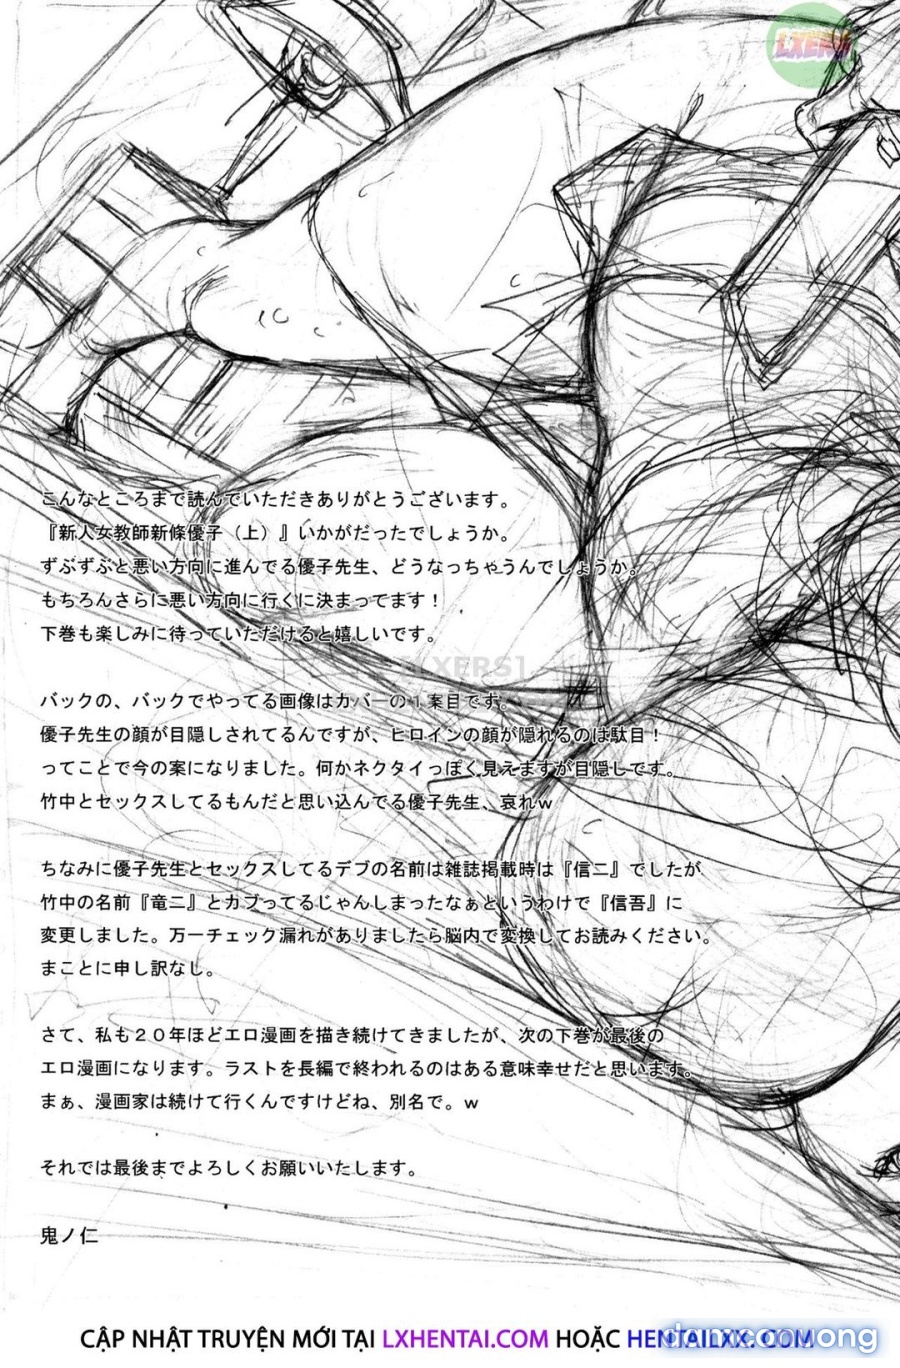 LXERS1
こんなところまで読んでいただきありがとうございます。
『新人女教師新條優子（上）』いかがだったでしょうか。
ずぶずぶと悪い方向に進んでる優子先生、どうなっちゃうんでしょうか。
もちろんさらに悪い方向に行くに決まってます！
下巻も楽しみに待っていただけると嬉しいです。
LXERS1
バックの、バックでやってる画像はカバーの１案目です。
優子先生の顔が目隠しされてるんですが、ヒロインの顔が隠れるのは駄目！
ってことで今の案になりました。何かネクタイっぽく見えますが目隠しです。
竹中とセックスしてるもんだと思い込んでる優子先生、哀れｗ
ちなみに優子先生とセックスしてるデブの名前は雑誌掲載時は『信二』でしたが
竹中の名前『竜二』とカブってるじゃんしまったなぁというわけで『信吾』に
変更しました。万一チェック漏れがありましたら脳内で変換してお読みください。
まことに申し訳なし。
さて、私も２０年ほどエロ漫画を描き続けてきましたが、次の下巻が最後の
エロ漫画になります。ラストを長編で終われるのはある意味幸せだと思います。
まぁ、漫画家は続けて行くんですけどね、別名で。ｗ
それでは最後までよろしくお願いいたします。
鬼ノ仁
CẬP NHẬT TRUYỆN MỚI TẠI LXHENTAI.COM HOẶC HENTAILXX.COM
damconuong